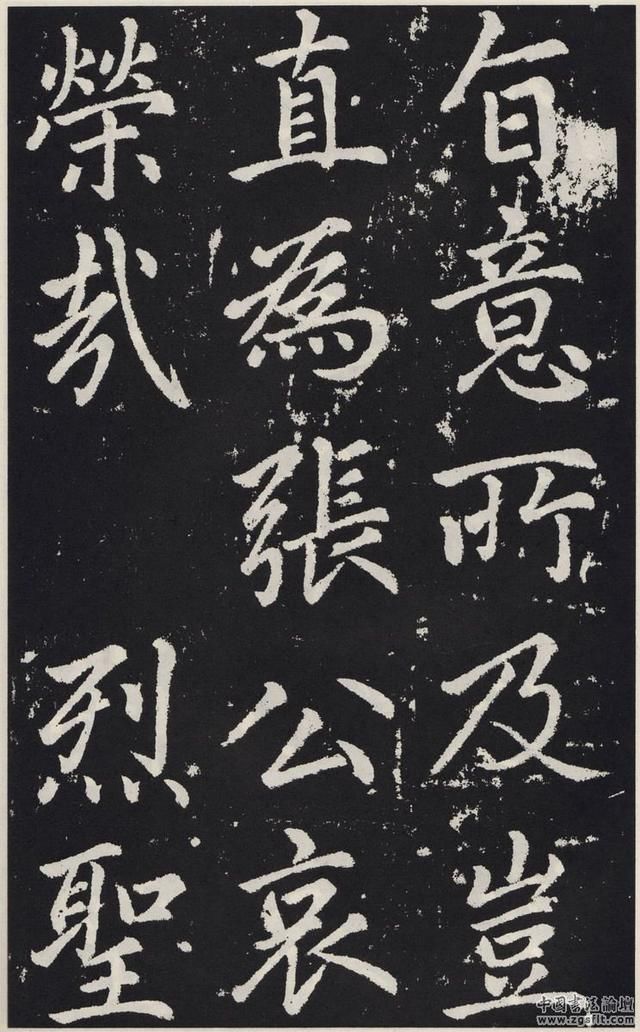 旨意所及豈
直為張公哀
榮哉 烈聖
中国书法论坛
www.zgsflt.com